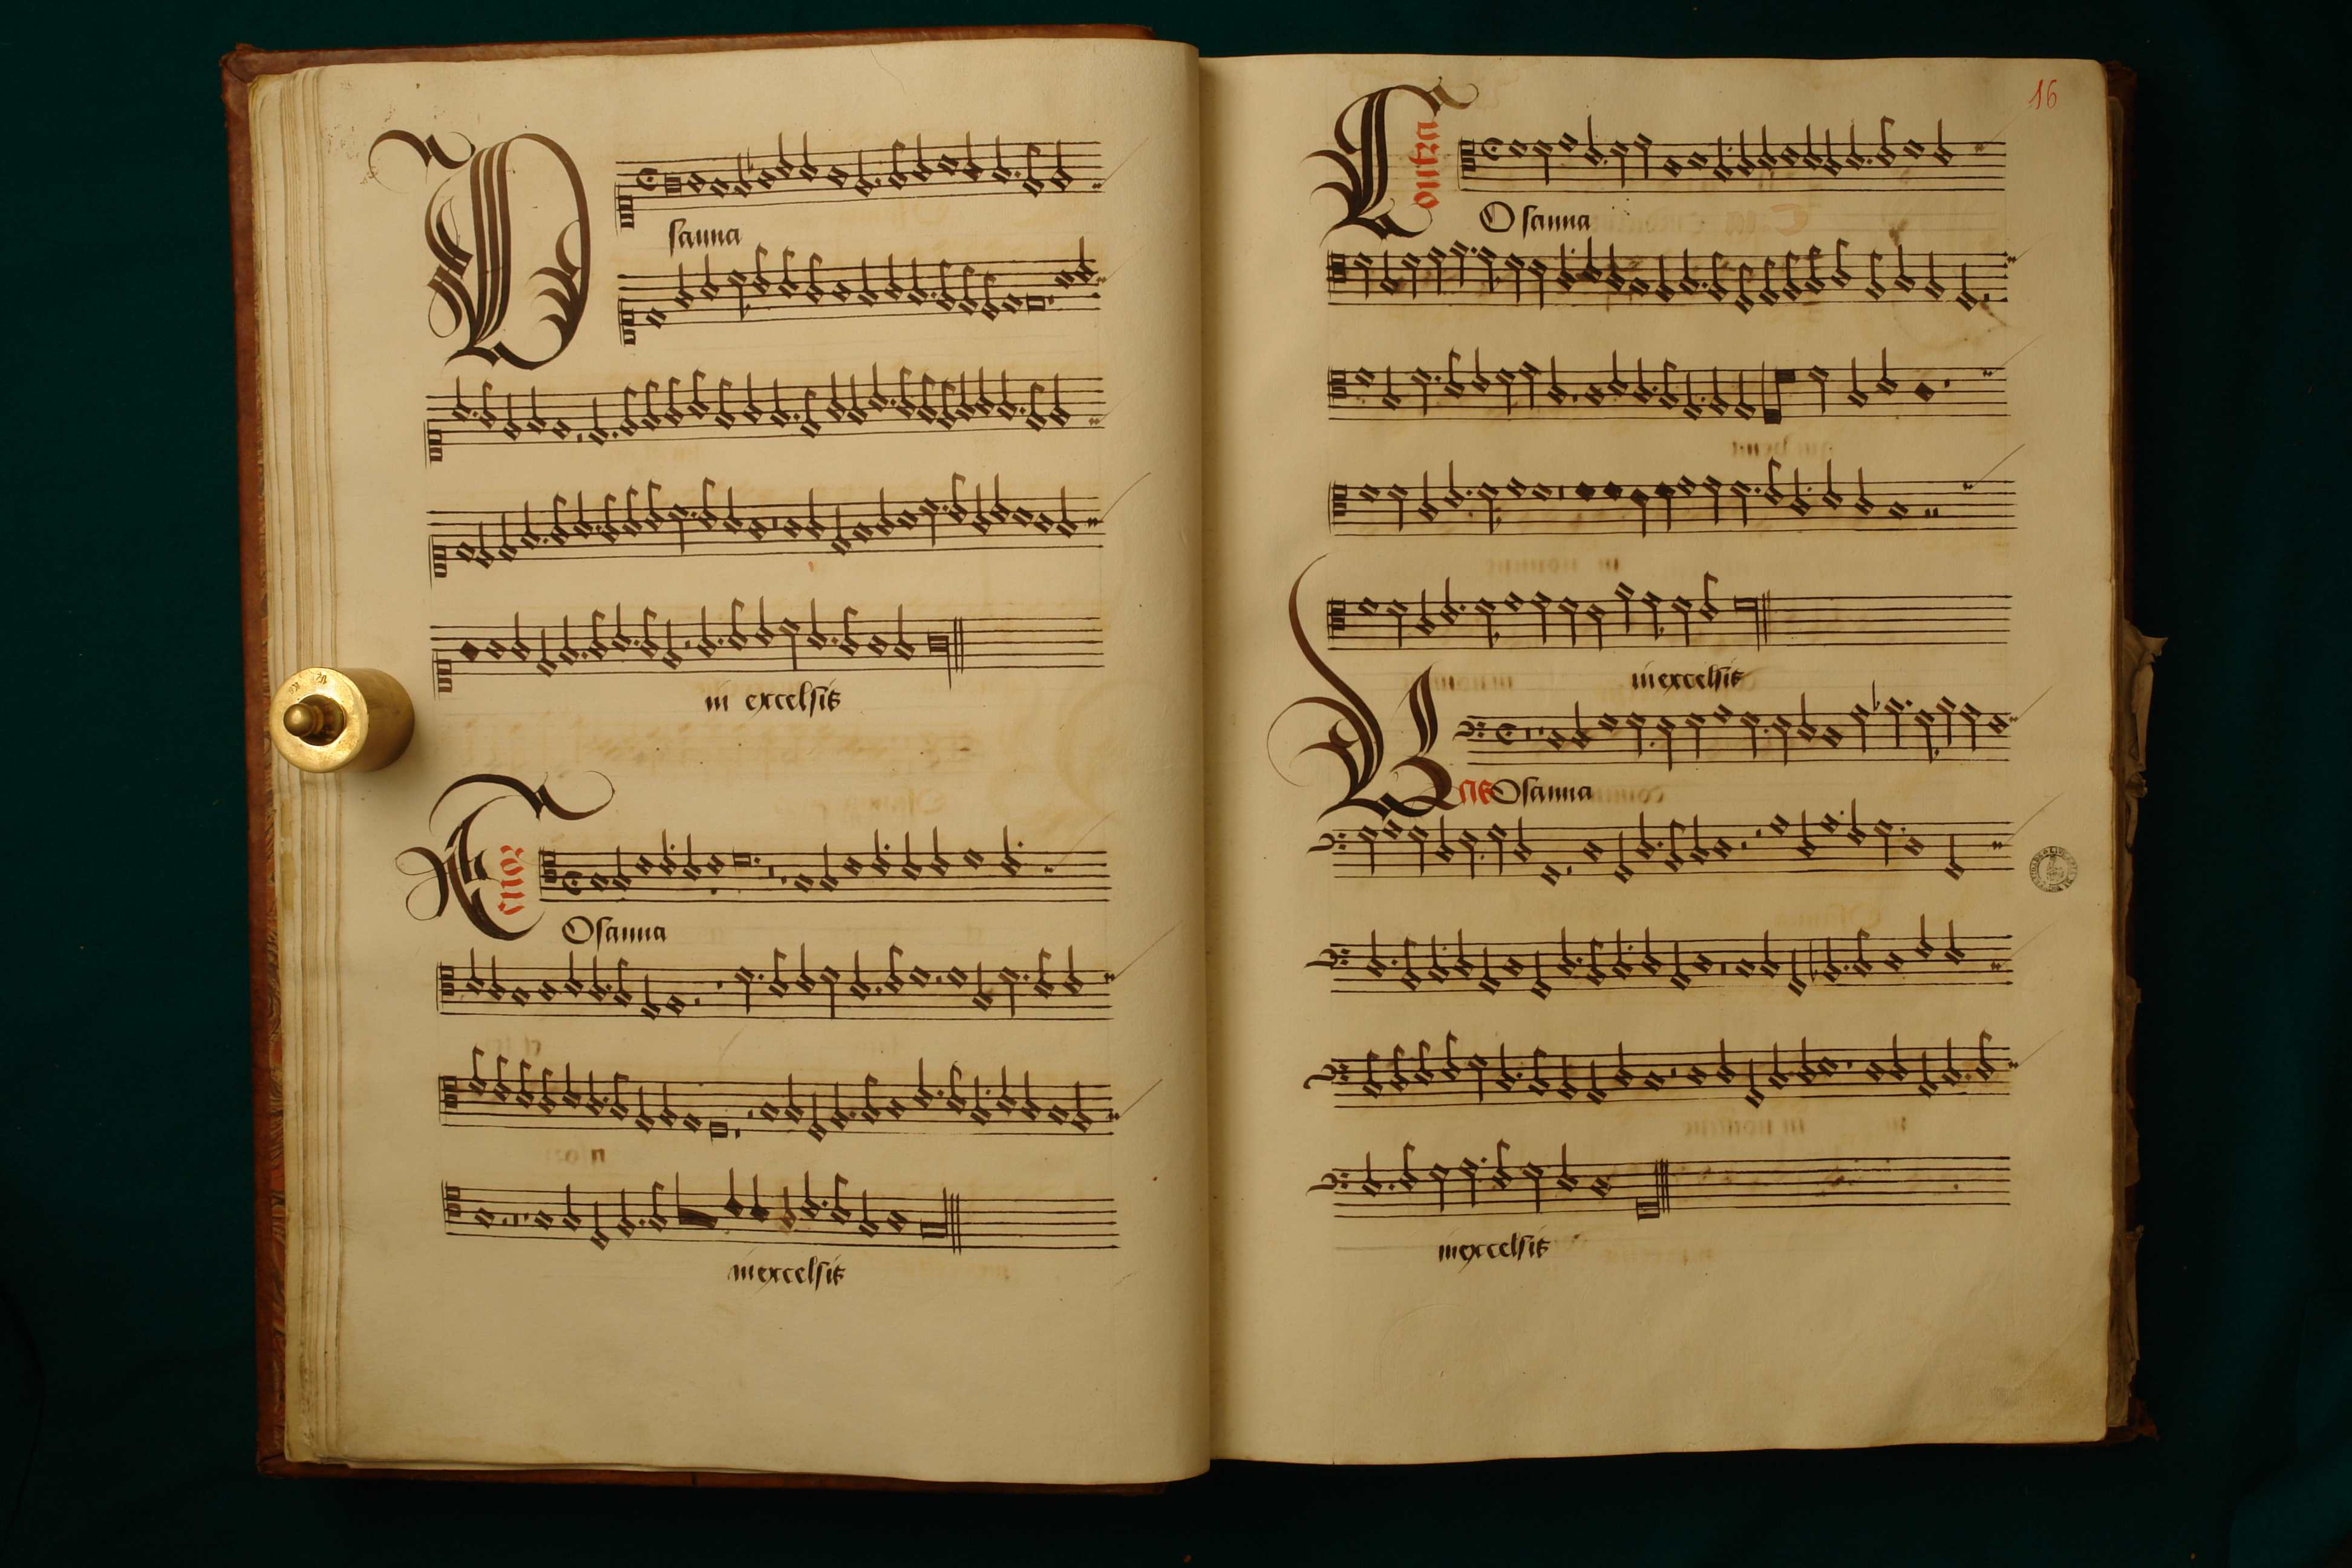 O
sanna
in excelsis
Tenor
Osanna
in excelsis
16
Contra
Osanna
in excelsis
Bas Osanna
in excelsis